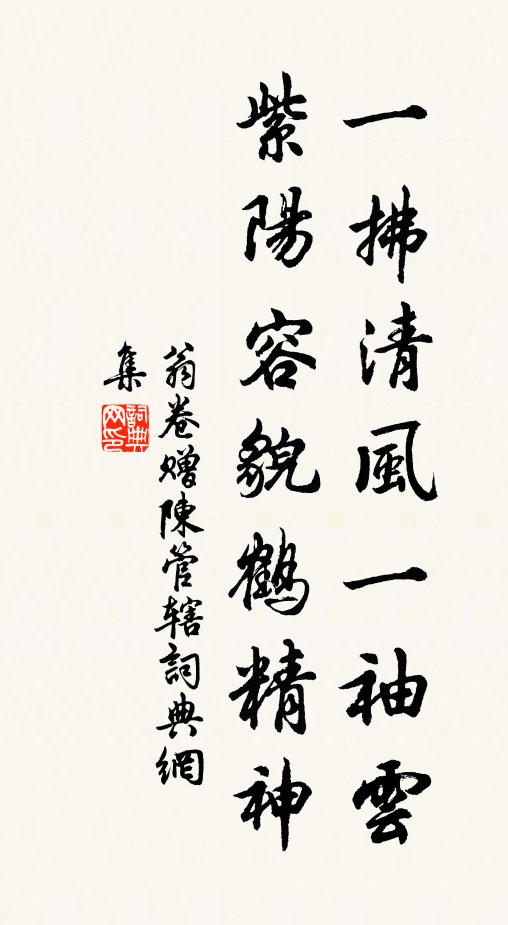 一拂清風一袖雲
紫陽容貌鶴精神
翁卷贈陳管轄詞典網
集
詞典网印